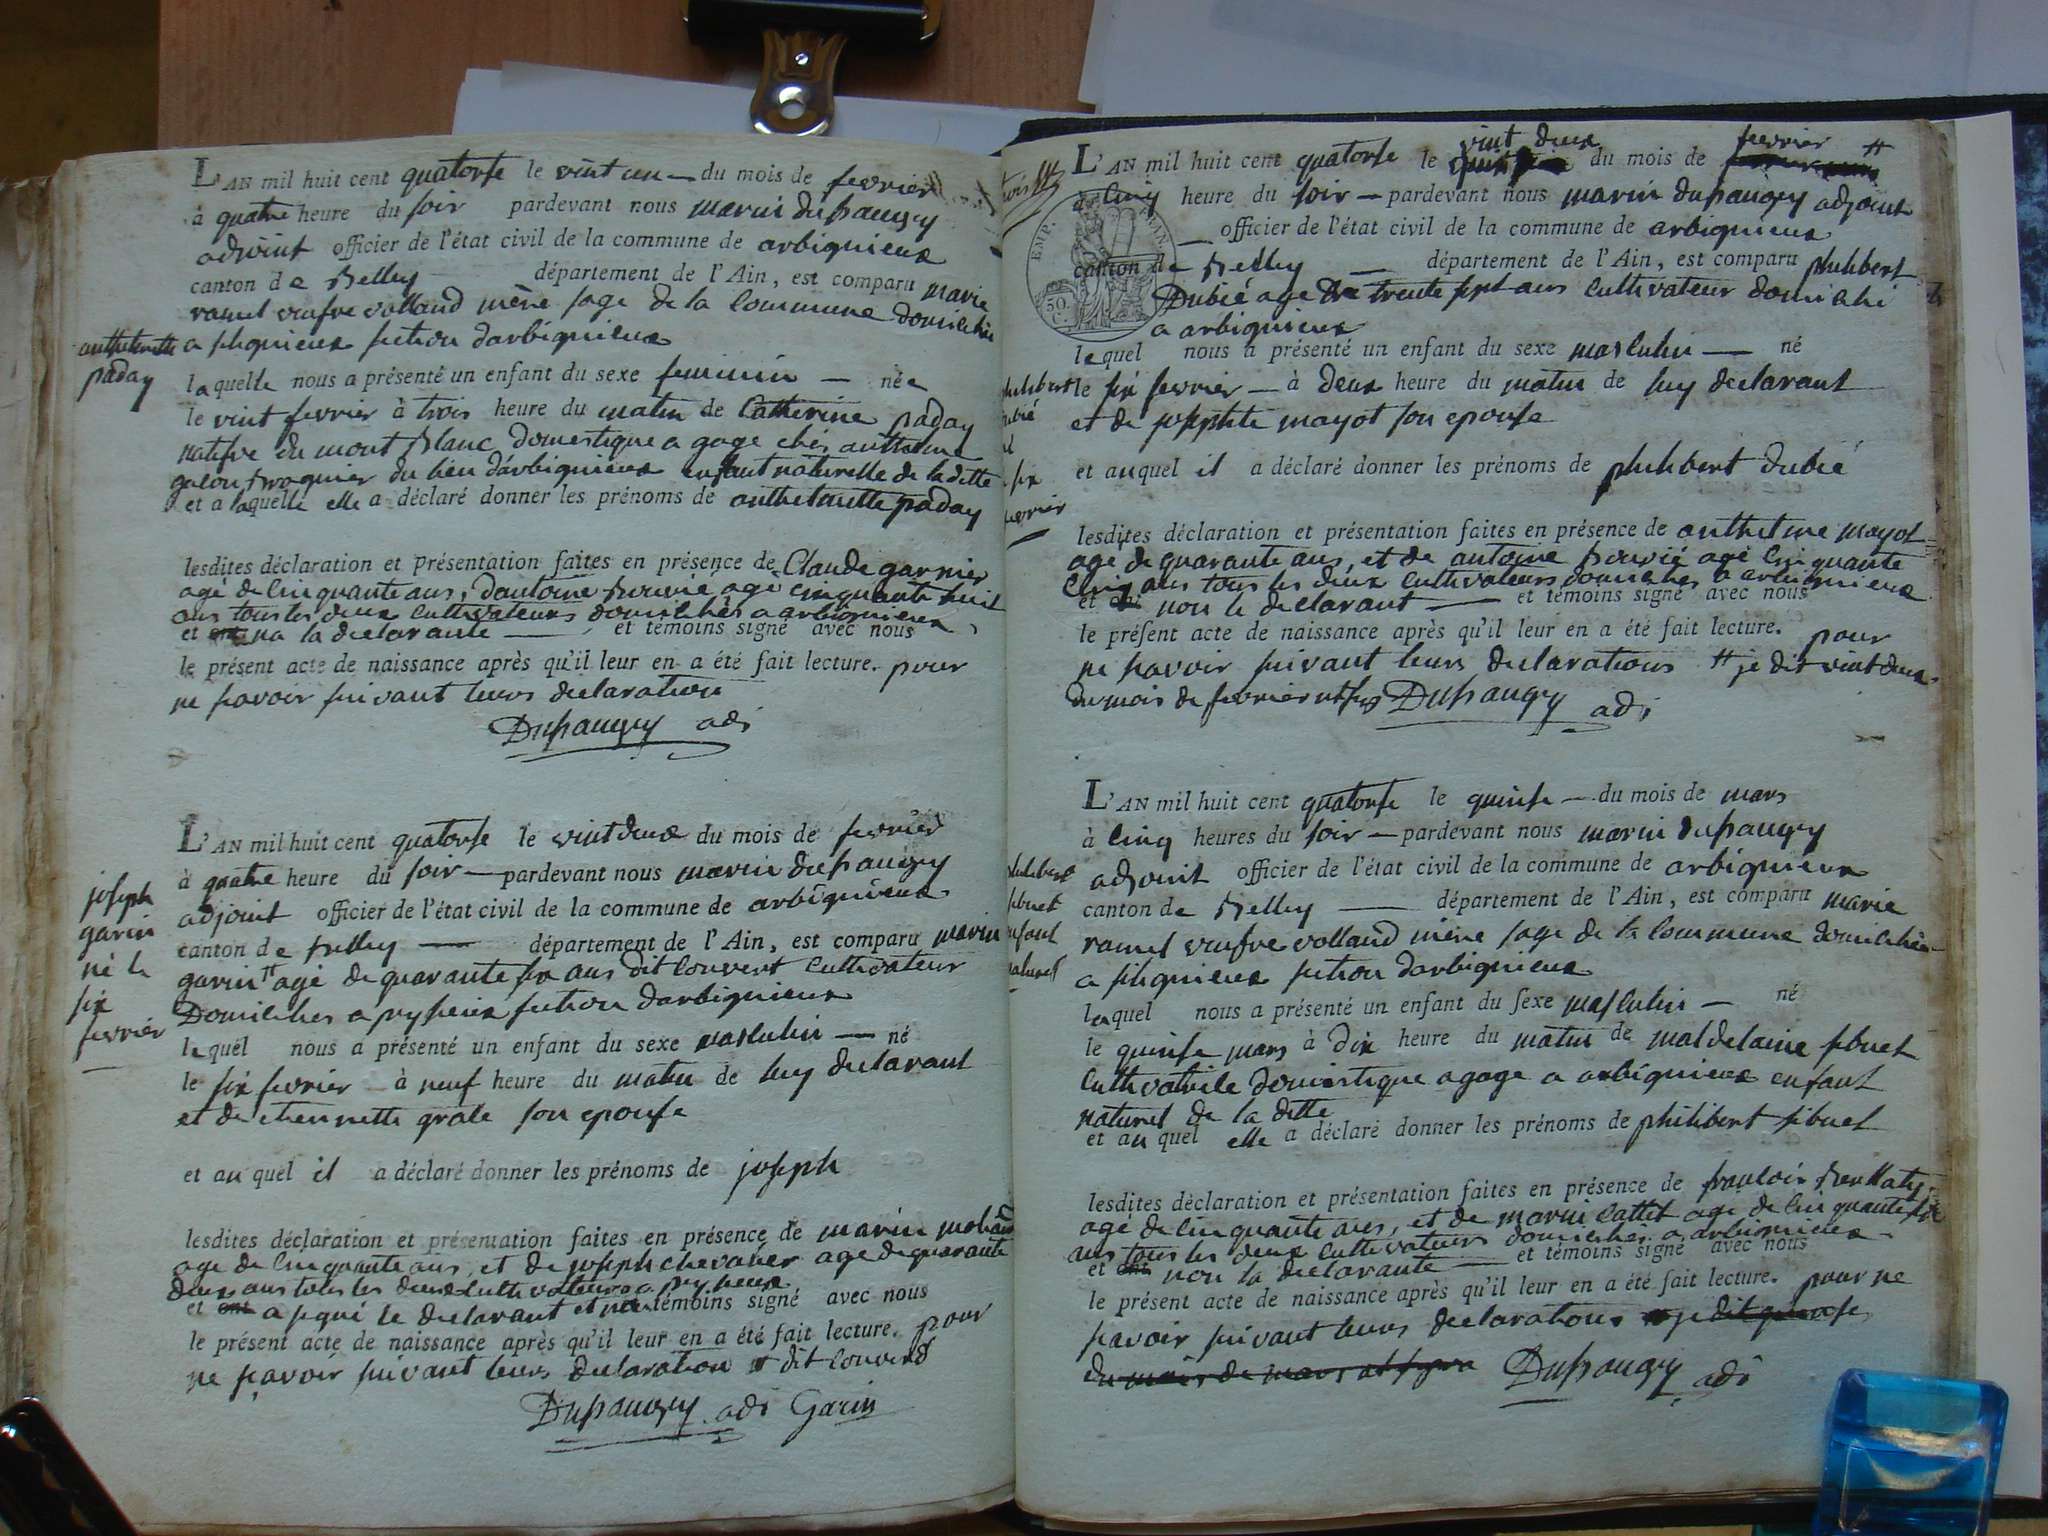 L'AN mil huit cent quatorse le vint un du mois de fevrier
à quatre heure du soir pardevant nous marin dupaugey
adjoint officier de l'état civil de la commune de arbignieux
canton de Belley département de l'Ain, est comparu marie
ramel veufve volland mère sage de la commune domiciliée
a slignieux section darbignieux
anthelmette
paday
laquelle nous a présenté un enfant du sexe feminin née
le vint fevrier à trois heure du matin de Catherine paday
natifve du mont Blanc domestique a gage chés anthelme
du lieu d'arbignieux enfant naturelle de la ditte
et a laquelle elle a déclaré donner les prénoms de anthelmette paday
lesdites déclaration et présentation faites en présence de Claude garnier
agé de cinquante ans, d'antoine bouvié agé cinquante huit
ans tous les deux cultivateurs domiciliés a arbignieux,
et ont na la declarante et témoins signé avec nous
le présent acte de naissance après qu'il leur en a été fait lecture. pour
ne savoir suivant leurs declaration
Dupaugey adj
L'AN mil huit cent quatorse le vint deux du mois de fevrier
à quatre heure du soir pardevant nous marin dupaugey
adjoint officier de l'état civil de la commune de arbignieux
canton de belley département de l'Ain, est comparu marin
garin # agé de quarante six ans dit Couvert cultivateur
Domiciliés a peyzieu section darbignieux
joseph
garin
né le
six
fevrier
lequel nous a présenté un enfant du sexe masculin né
le six fevrier à neuf heure du matin de luy declarant
et de etiennette grale son epouse
et au quel il a déclaré donner les prénoms de joseph
lesdites déclaration et présentation faites en présence de marin
age de cinquante ans, et de joseph chevalier age de quarante
deux ans tous les deux cultivateurs a peyzieux
et ont a signé le declarant et témoins signé avec nous
le présent acte de naissance après qu'il leur en a été fait lecture. pour
ne savoir suivant leurs declaration # dit Couvert
Dupaugey adj Garin
L'AN mil huit cent quatorse le vint deux du mois de fevrier #
à cinq heure du soir pardevant nous marin dupaugey adjoint
officier de l'état civil de la commune de arbignieux
EMP. FRAN.
50 C.
canton de Belley département de l'Ain, est comparu philibert
Dubié age de trente sept ans cultivateur domicilié
a arbignieux
lequel nous a présenté un enfant du sexe masculin né
le six fevrier à deux heure du matin de luy declarant
et de josephte mayot son epouse
philibert
dubié
six
fevrier
et auquel il a déclaré donner les prénoms de philibert dubié
lesdites déclaration et présentation faites en présence de anthelme mayot
agé de quarante ans, et de antoine bouvié agé cinquante
cinq ans tous les deux cultivateurs domiciliés a arbignieux
et ont non le declarant et témoins signé avec nous
le présent acte de naissance après qu'il leur en a été fait lecture. pour
ne savoir suivant leurs declarations # je dit vint deux
du mois de fevrier Dupaugey adj
L'AN mil huit cent quatorse le quinse du mois de mars
à cinq heures du soir pardevant nous marin dupaugey
adjoint officier de l'état civil de la commune de arbignieux
canton de Belley département de l'Ain, est comparu marie
ramel veufve volland mère sage de la commune domiciliée
a slignieux section darbignieux
philibert
sibuet
enfant
naturel
laquel nous a présenté un enfant du sexe masculin né
le quinse mars à dix heure du matin de maldelaine sibuet
cultivatrile domestique a gage a arbignieux enfant
naturel de la ditte
et au quel elle a déclaré donner les prénoms de philibert sibuet
lesdites déclaration et présentation faites en présence de
agé de cinquante ans, et de marin Cattet age de cinquante six
ans tous les deux cultivateurs domiciliés a arbignieux
et ont non la declarante et témoins signé avec nous
le présent acte de naissance après qu'il leur en a été fait lecture. pour ne
savoir suivant leurs declarations je dit quinse
du mois de mars Dupaugey adj